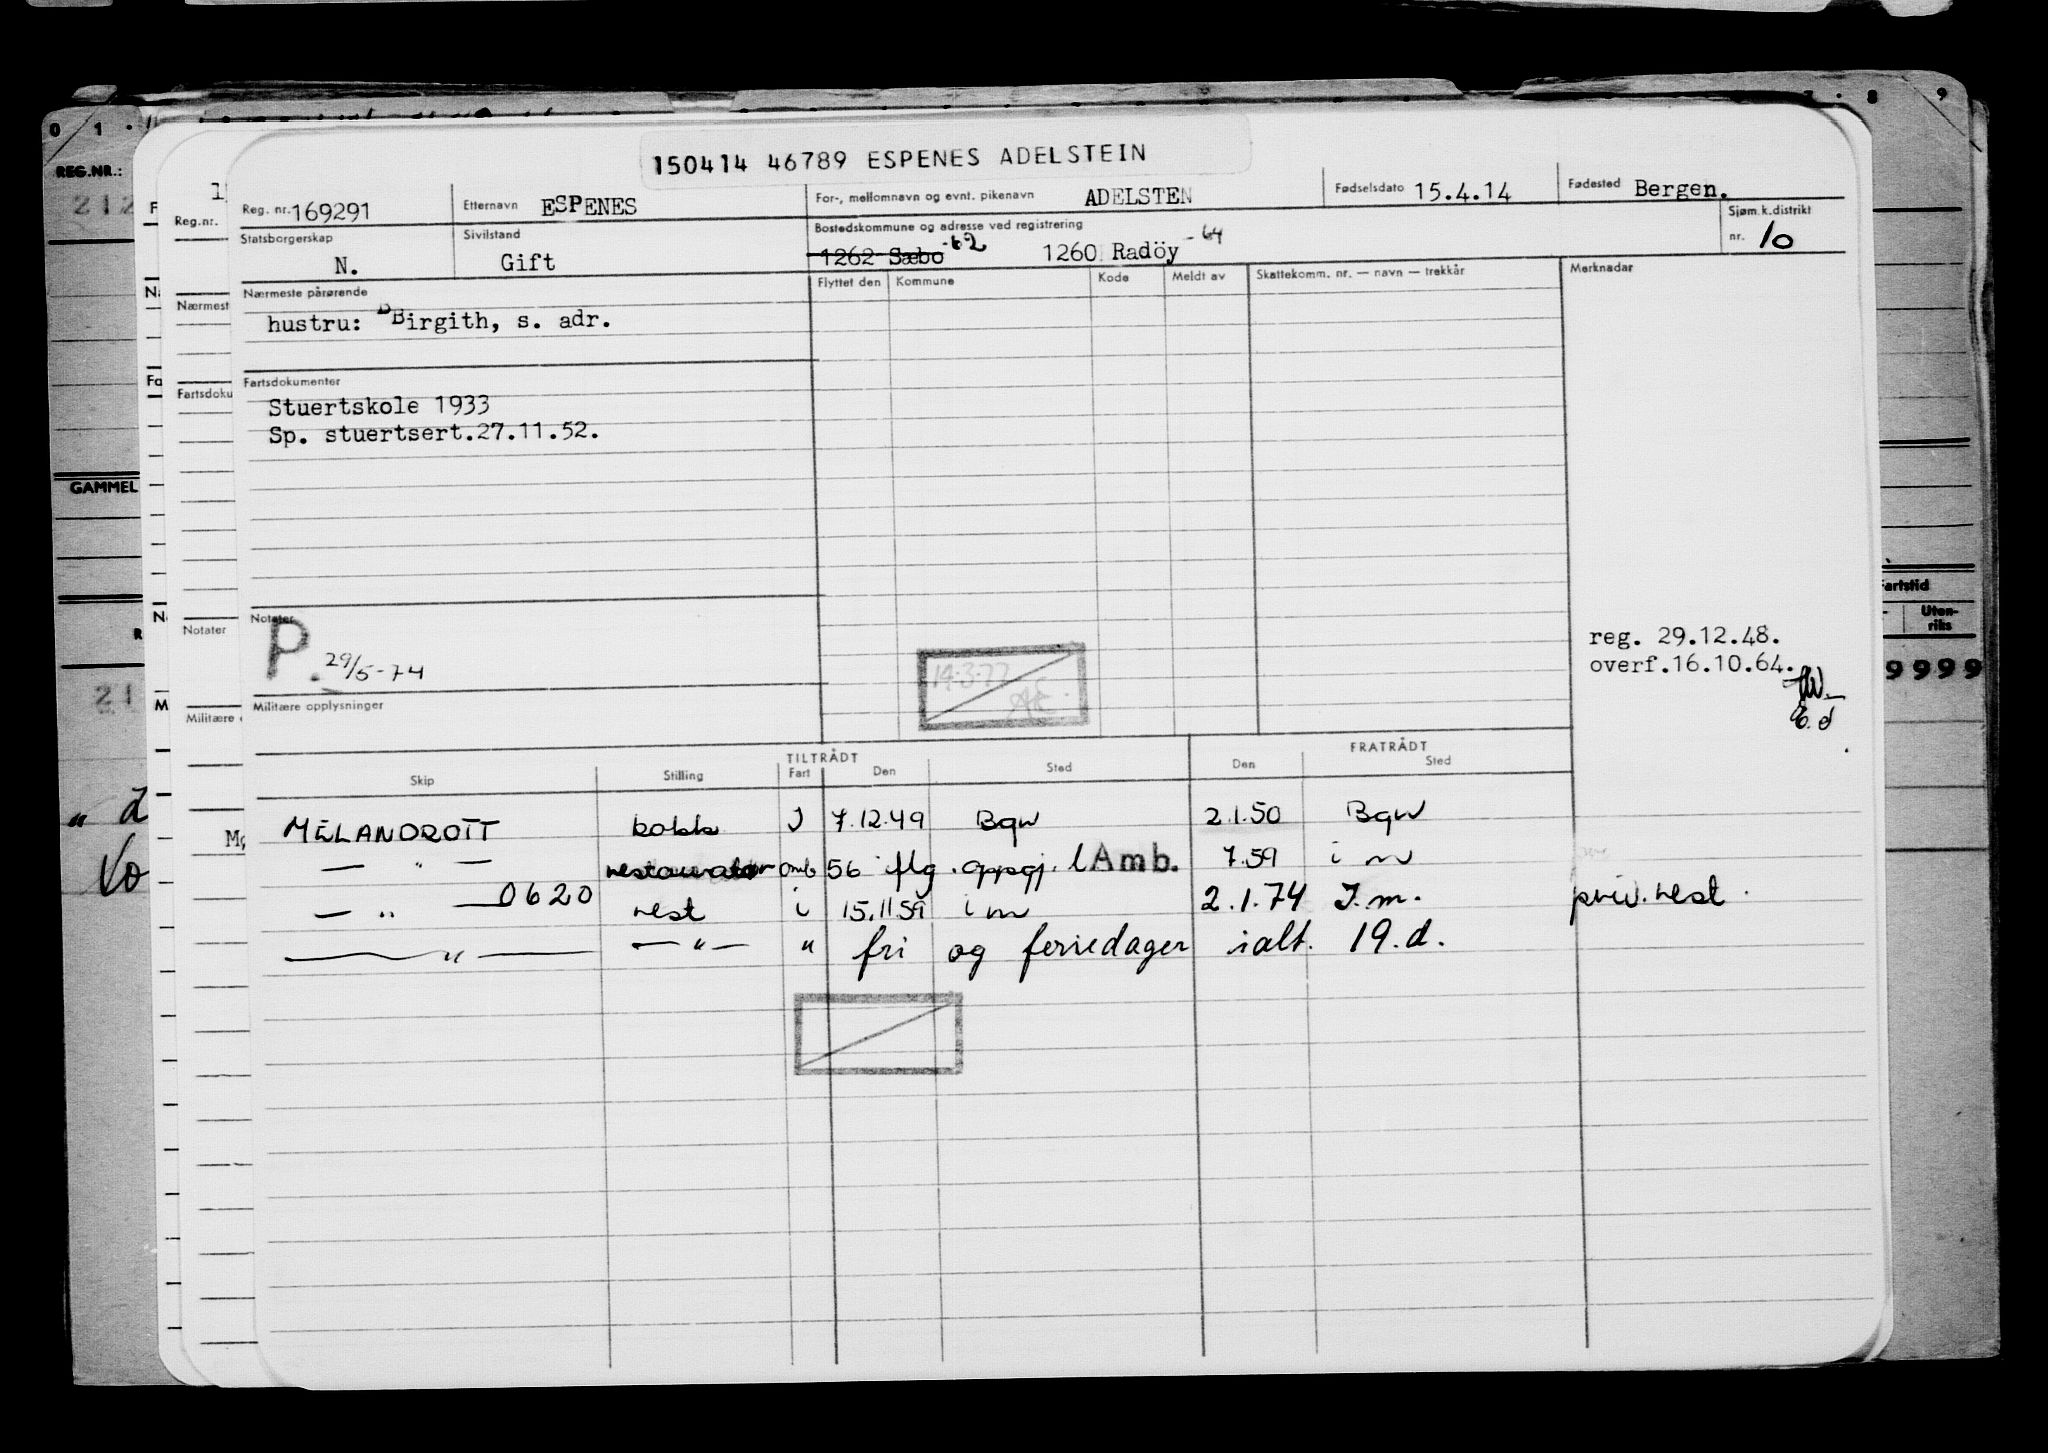 0 1 . 7 . 8 9
REG.NR.:
212
150414 46789 ESPENES ADELSTEIN
Reg. nr. 169291 Etternavn ESPENES For-, mellomnavn og evnt. pikenavn ADELSTEN Fødselsdato 15.4.14 Fødested Bergen.
Reg.nr.
Statsborgerskap N. Sivilstand Gift Bostedskommune og adresse ved registrering 1262 Sæbo -62 1260 Radöy -64 Sjøm.k.distrikt nr. 10
Nærmeste pårørende Flyttet den Kommune Kode Meldt av Skattekomm. nr. — navn — trekkår Merknadar
Nærmest
hustru: Birgith, s. adr.
Fartsdokumenter
Fartsdoku
Stuertskole 1933
Sp. stuertsert.27.11.52.
GAMMEL
Fartstid
Uten-
riks
Notater
Notater
P. 29/5-74
14.3.77
reg. 29.12.48.
overf.16.10.64.
9999
21
Militære opplysninger
Militære
TILTRÅDT FRATRÅDT
Skip Stilling Fart Den Sted Den Sted
MELANDROTT kokk J 7.12.49 Bgw 2.1.50 Bgw
— " — restauratør omb 56 iflg. oppgj. l Amb. 7.59 i m
— " — 0620 rest i 15.11.59 i m 2.1.74 J.m. priv. rest.
— " — — " — " fri og feriedager ialt. 19.d.